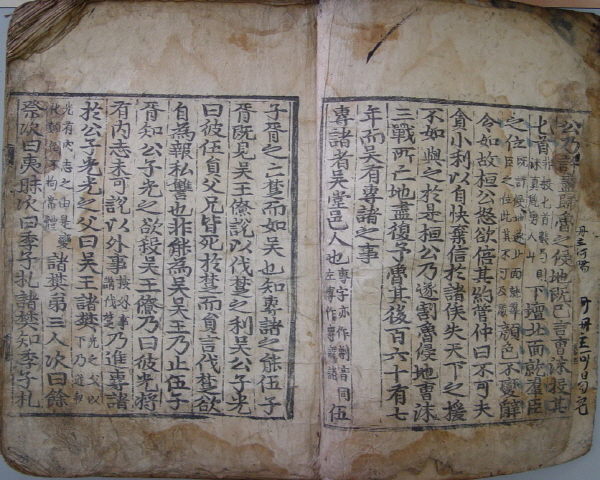 公乃許盡歸魯之侵地既已言曹沫投其
匕首下壇北面就羣臣
之位顔色不變辭
令如故桓公怒欲倍其約管仲曰不可夫
貪小利以自快棄信於諸侯失天下之援
不如與之於是桓公乃遂割魯侵地曹沫
三戰所亡地盡復予魯其後百六十有七
年而吳有專諸之事
專諸者吳堂邑人也專字亦作剸音同左傳作專設諸伍
子胥之亡楚而如吳也知專諸之能伍子
胥既見吳王僚說以伐楚之利吳公子光
曰彼伍員父兄皆死於楚而員言伐楚欲
自爲報私讐也非能爲吳吳王乃止伍子
胥知公子光之欲殺吳王僚乃曰彼光將
有内志未可說以外事乃進專諸
於公子光光之父曰吳王諸樊光之父以下乃
光有内志之由是變不拘常體諸樊弟三人次曰餘
祭次曰夷眛次曰季子札諸樊知季子札